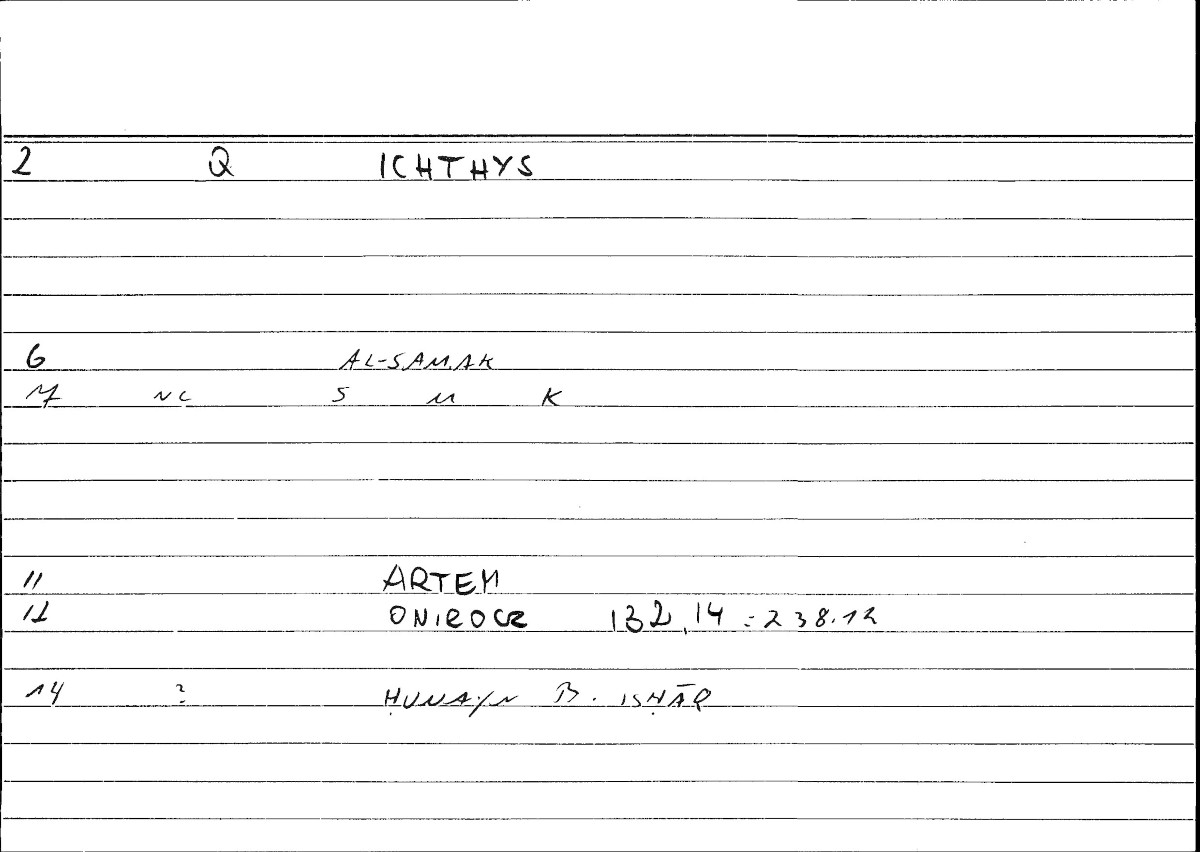 2 Q ICHTHYS
6 AL-SAMAK
7 NC S M K
11 ARTEM
12 ONIROCR 132,14 = 238.12
14 ? ḤUNAYN B. ISḤĀQ